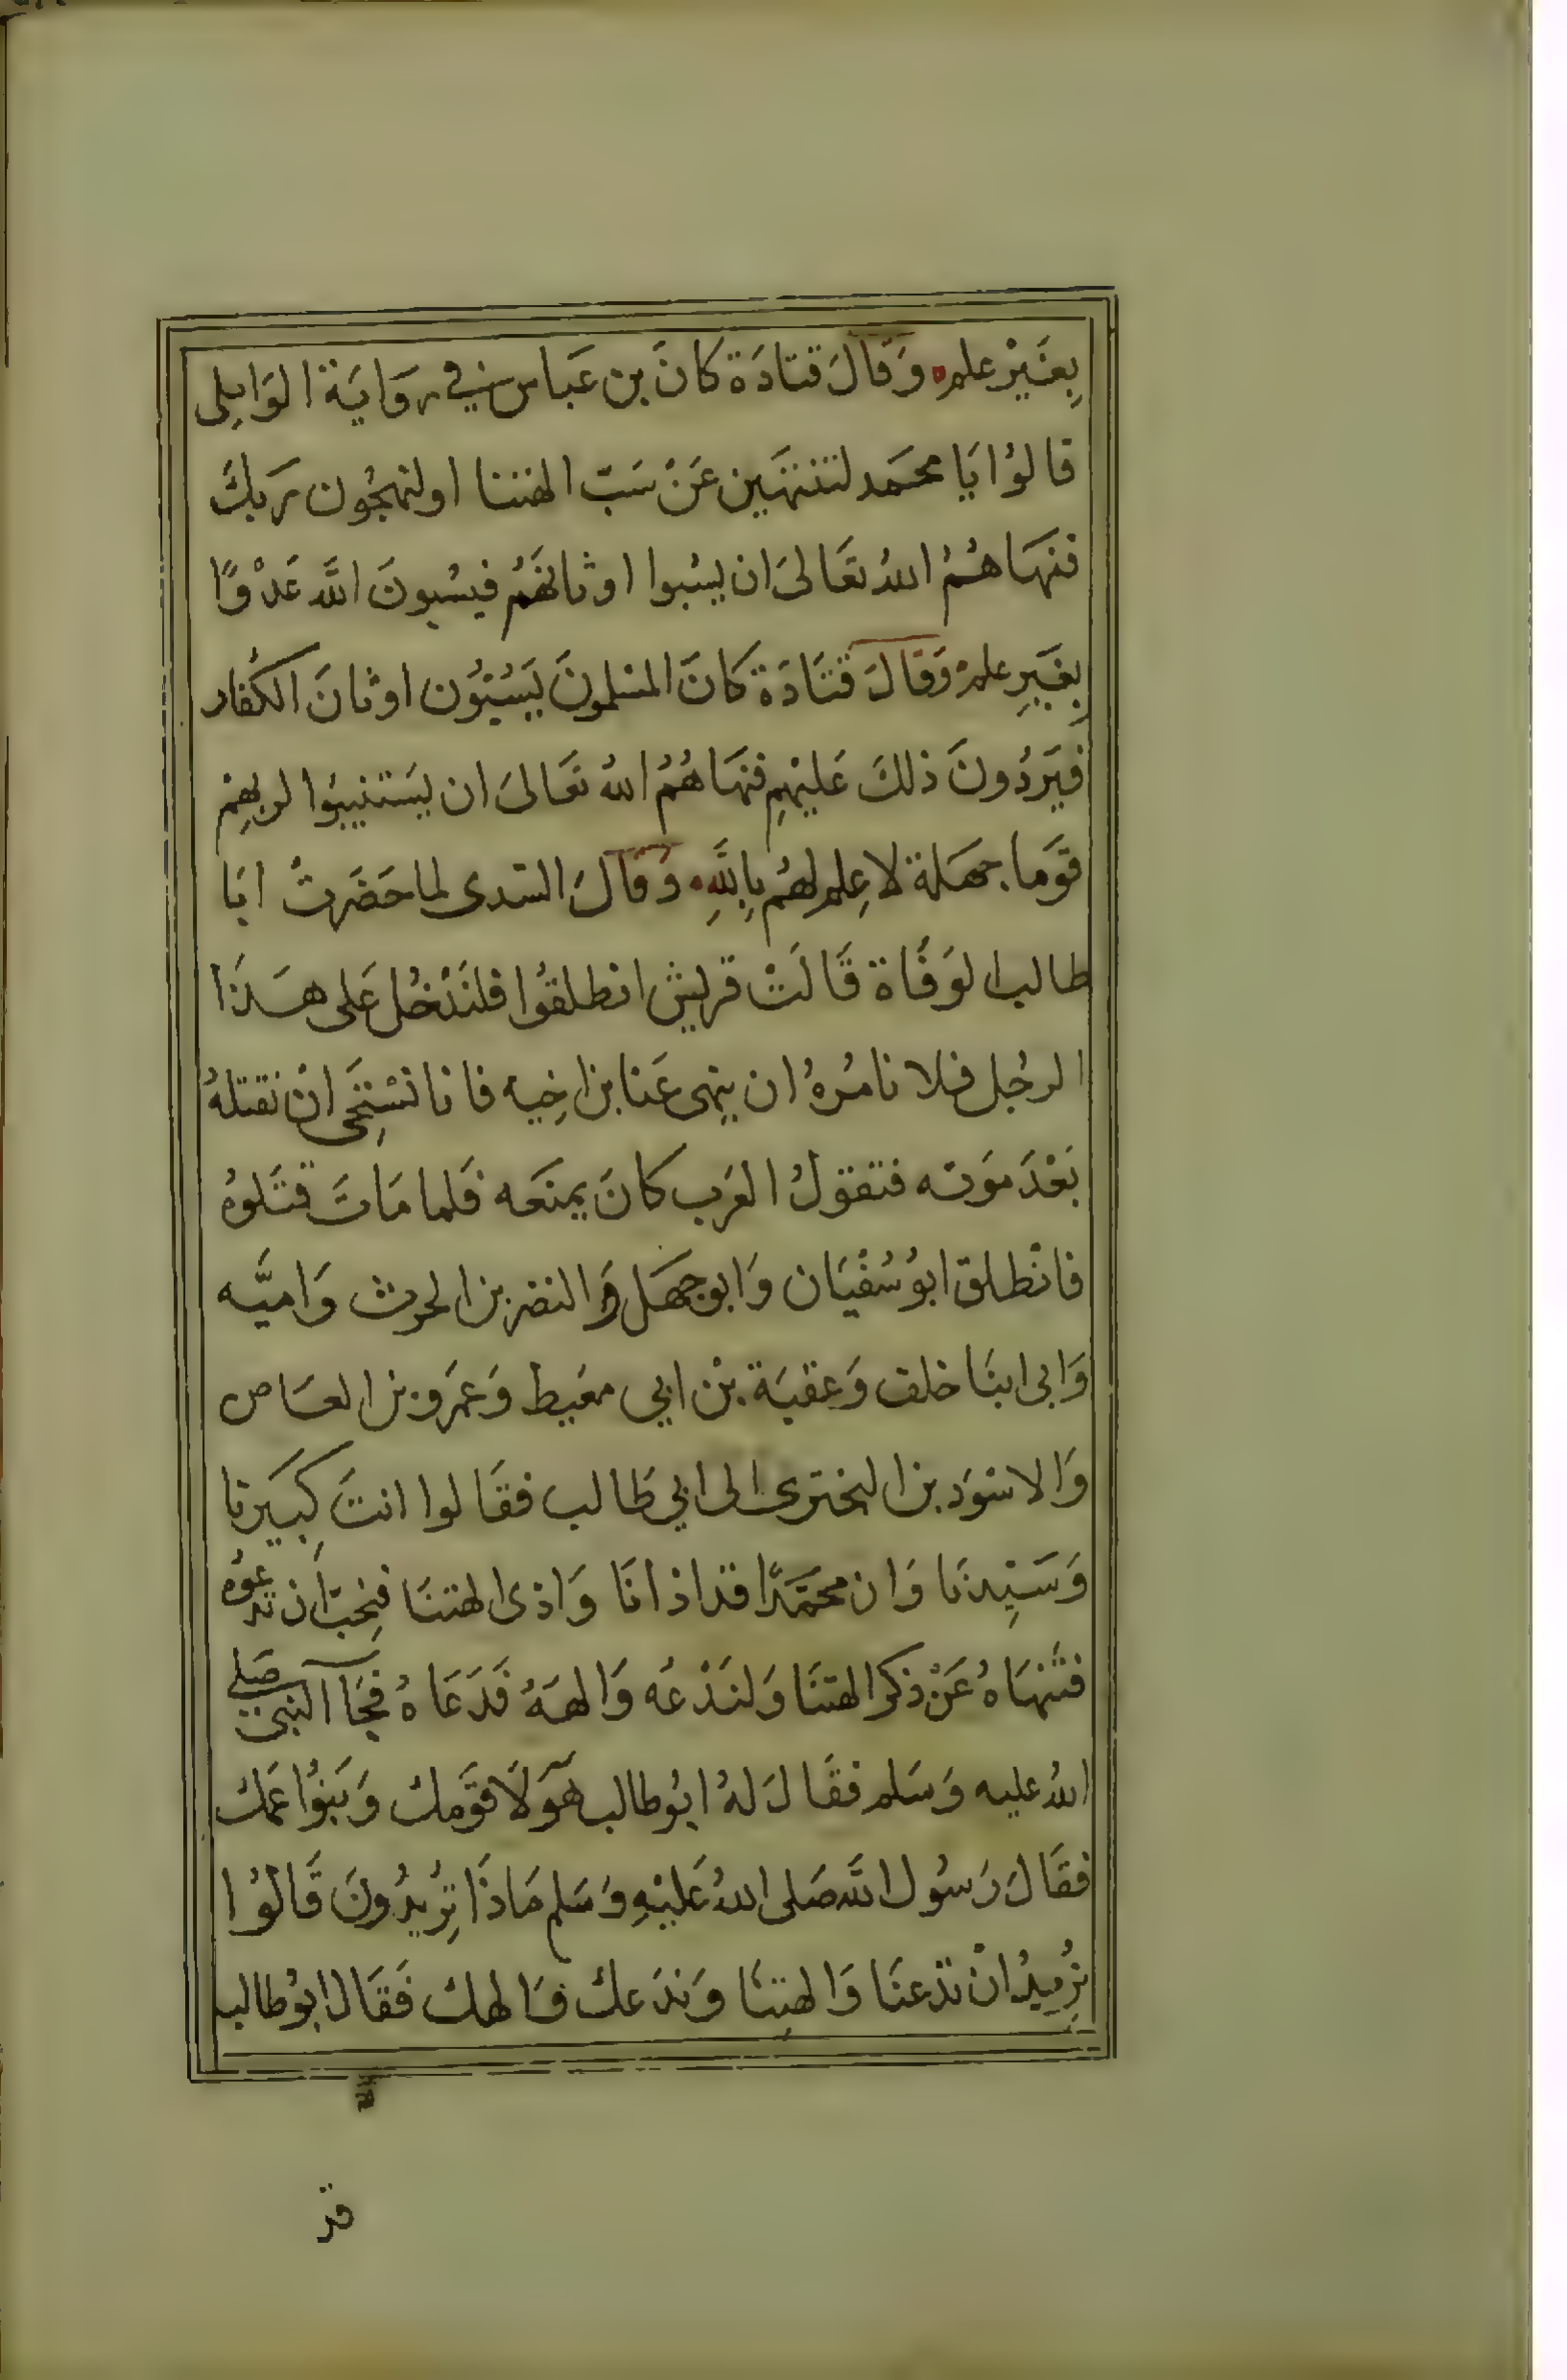 بِغَيْرِ علم وَقَالَ قتادَة كانَ بن عَباس في روَايَة الوَابلى
قالوُا يَا محمَد لتنتهَين عَنْ سَبّ الهتنا اولنهجُون رَبكَ
فنهَاهُمُ اللهُ تعَالىَ ان يسُبوا اوثانهَمُ فيسُبونَ اللَّه عَدْوًا
بِغَيرِ علم وَقالَ قتَادَة كانَ المسْلمونَ يَسُبّوُن اوثانَ الكُفار
فيَردُونَ ذلكَ عَليْهِم فنهَاهُمُ اللهُ تعَالىَ ان يَستنيبوُا لربهِم
قوَما جهَلة لا عِلم لهُم بِاللَّهِ وَقالَ السّدى لما حَضَرتْ ابَا
طالب الوَفَاة قَالَتْ قريش انطلقوُا فلنَدْخُل عَلى هَذَا
الرجُل فلا نامُرهُ ان ينهى عَنا بن اخِيه فانا نسْتحِى انْ نقتلهُ
بَعْدَ موَته فتقولُ العَرب كانَ يمنَعَه فَلما مَاتَ قتَلوُهُ
فانْطلق ابوُ سُفْيَان وَابو جهَل وَالنضر بن الحرث وَاميَّه
وَابى ابنَا خلف وَعقبَة بْن ابي معَيط وَعمَرو بن العَاص
وَالاسْوَد بن البخترى الى ابي طَالب فقَالوا انتَ كبِيَرنا
وَسَيِدنَا وَان محمَّدًا قد اذانَا وَاذى الهتنَا فنِحبّ ان تدعوُه
فتْنهَاهُ عَنْ ذكر الهتنَا وَلنَدْعُه وَالههُ فَدَعَاهُ فجَآ النبى صَلى
اللهُ عليه وَسَلم فقَالَ لهُ ابُو طالب هَوَلآ قوَمك وَبَنوُا عَمك
فقَالَ رَسوُل اللَّه صَلى اللهُ عَليْهِ وَسَلم مَاذَا تِرُيدُونَ قَالوُا
نرُيدُ انْ تدَعنَا وَالهتنَا وَندَعكَ وَالهك فَقَال ابوُ طالب
قد